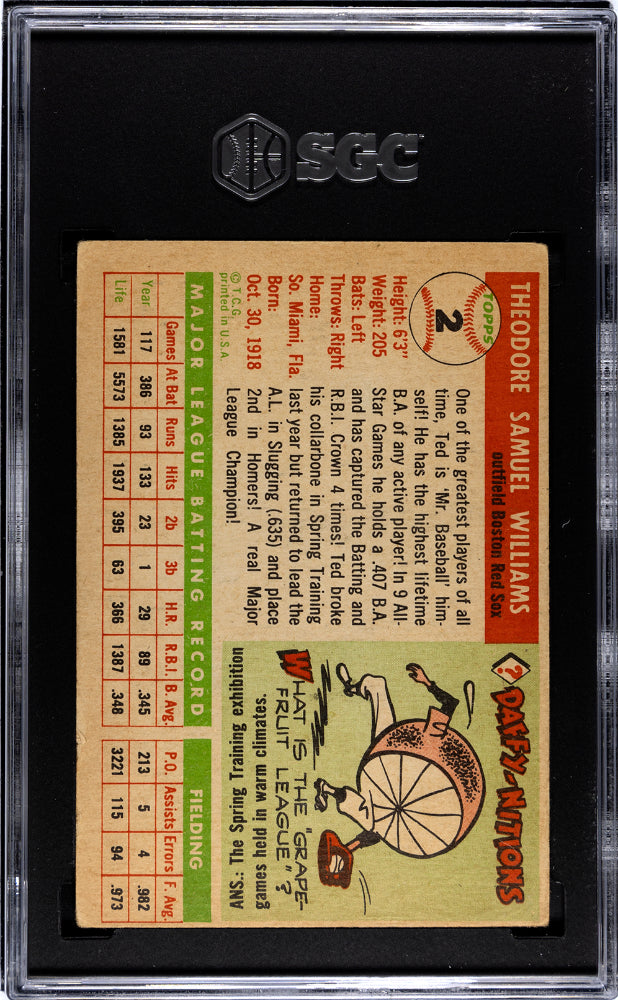 SGC
THEODORE SAMUEL WILLIAMS
outfield Boston Red Sox
TOPPS
2
Height: 6'3"
Weight: 205
Bats: Left
Throws: Right
Home:
So. Miami, Fla.
Born:
Oct. 30, 1918
© T.C.G.
printed in U.S.A.
One of the greatest players of all
time, Ted is 'Mr. Baseball' him-
self! He has the highest lifetime
B.A. of any active player! In 9 All-
Star Games he holds a .407 B.A.
and has captured the Batting and
R.B.I. Crown 4 times! Ted broke
his collarbone in Spring Training
last year but returned to lead the
A.L. in Slugging (.635) and place
2nd in Homers! A real Major
League Champion!
?
DAFFY-NITIONS
WHAT IS THE "GRAPE-
FRUIT LEAGUE"?
ANS.: The Spring Training exhibition
games held in warm climates.
MAJOR LEAGUE BATTING RECORD FIELDING
Games At Bat Runs Hits 2b 3b H.R. R.B.I. B. Avg. P.O. Assists Errors F. Avg.
Year 117 386 93 133 23 1 29 89 .345 213 5 4 .982
Life 1581 5573 1385 1937 395 63 366 1387 .348 3221 115 94 .973